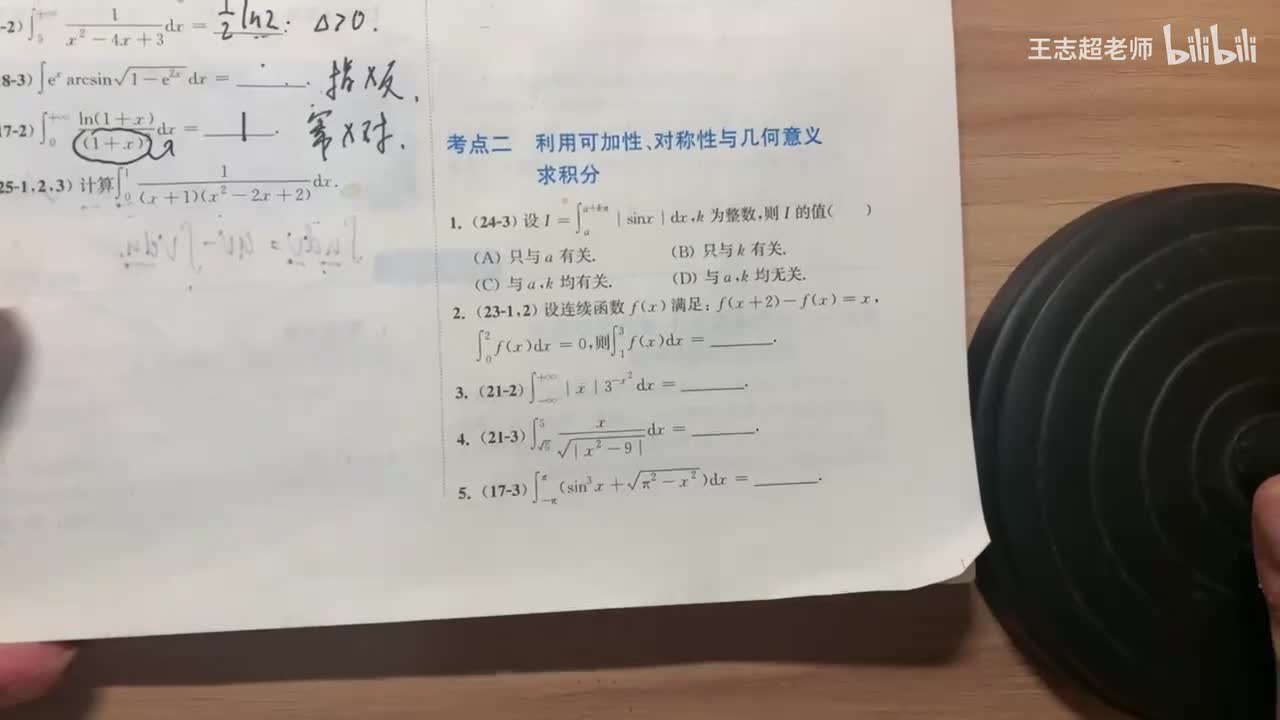 -2) ∫₅^{+∞} 1/(x²－4x＋3) dx = ½ ln2. Δ>0.
8-3) ∫eˣ arcsin√(1－e^{2x}) dx = ______. 指×反.
17-2) ∫₀^{+∞} ln(1＋x)/(1＋x)² dx = 1. 幂×对.
25-1,2,3) 计算∫₀¹ 1/((x＋1)(x²－2x＋2)) dx.
∫udv = uv - ∫vdu.
王志超老师 bilibili
考点二 利用可加性、对称性与几何意义
求积分
1. (24-3) 设 I = ∫ₐ^{a+kπ} | sinx | dx, k 为整数, 则 I 的值( )
(A) 只与 a 有关. (B) 只与 k 有关.
(C) 与 a,k 均有关. (D) 与 a,k 均无关.
2. (23-1,2) 设连续函数 f(x) 满足: f(x＋2)－f(x) = x,
∫₀² f(x)dx = 0, 则∫₁³ f(x)dx = ______.
3. (21-2) ∫_{-∞}^{+∞} | x | 3^{-x²} dx = ______.
4. (21-3) ∫_{√5}^{5} x/√(| x²－9 |) dx = ______.
5. (17-3) ∫_{-π}^{π} (sin³x＋√(π²－x²))dx = ______.